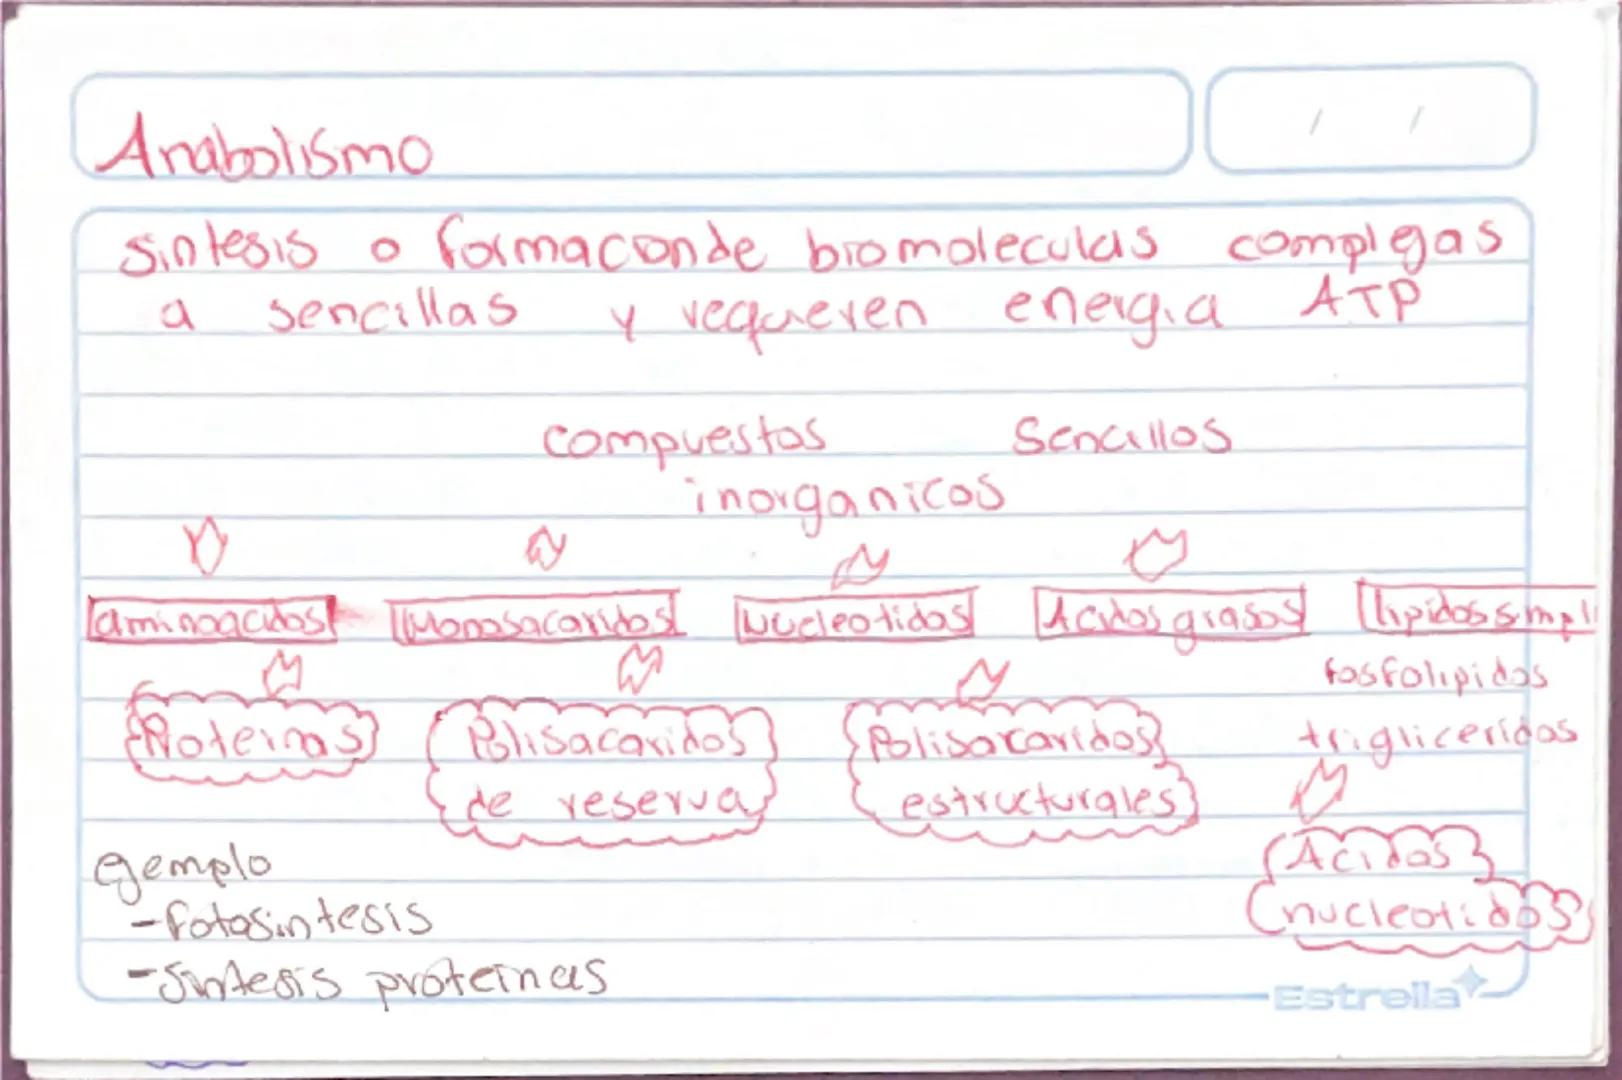 Anabolismo
sintesis o formacionde biomoleculas complegas
a sencillas y requieren energia ATP
compuestos sencillos
inorganicos
aminoacidos Monosacaridos Nucleotidos Acidos grasos lipidos simpli
fosfolipidos
Proteinas Polisacaridos Polisacaridos trigliceridos
de reserva estructurales
ejemplo Acidos
-fotosintesis nucleotidos
-Sintesis proteinas
Estrella